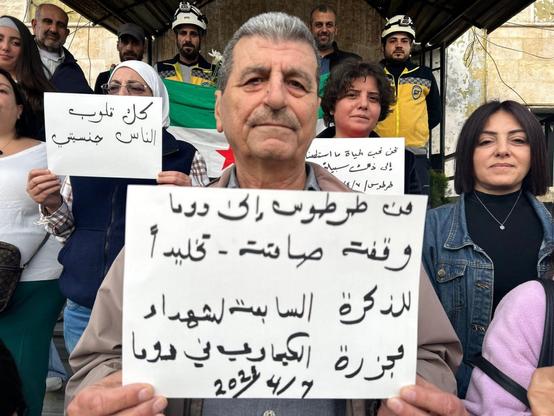 كل قلوب
الناس جنسيتي
نحن نحب الحياة ما استطعنا
إلى ذلك سبيلا
طرطوس
من طرطوس إلى دوما
وقفة صامتة - تخليداً
للذكرة السابعة لشهداء
مجزرة الكيماوي في دوما
2025/4/7